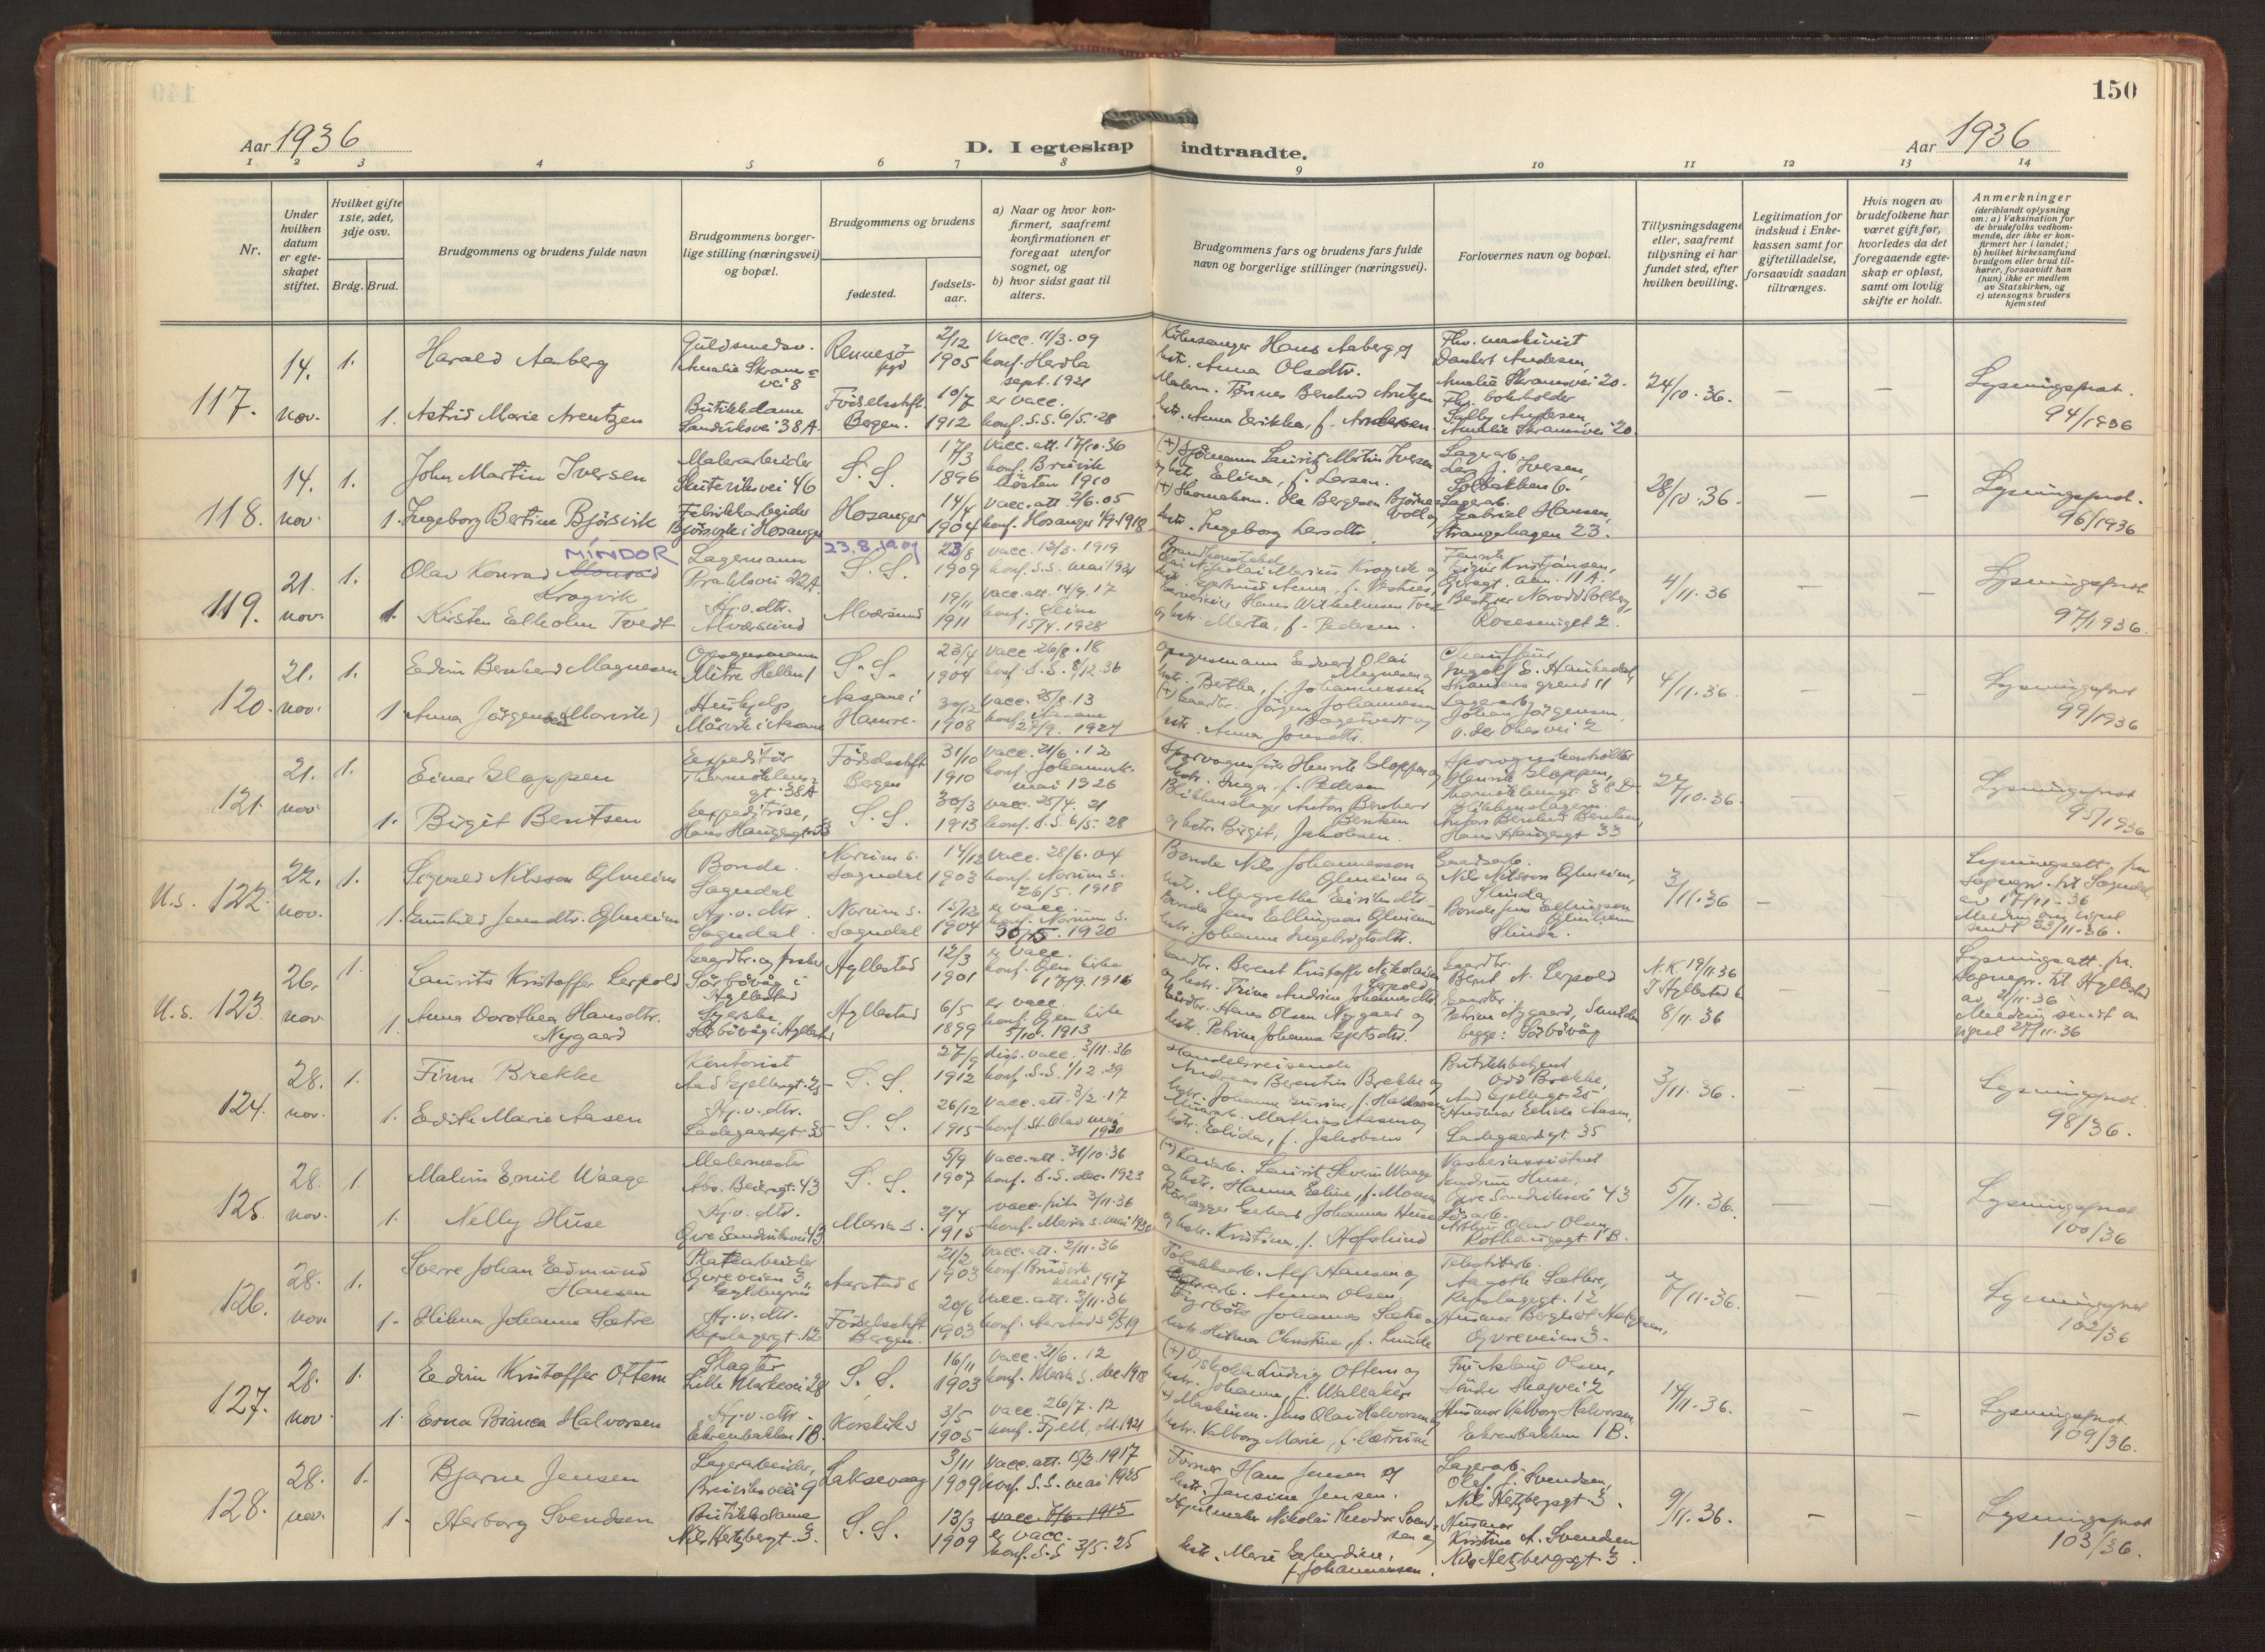 150
Aar 1936
D. I egteskap indtraadte.
Aar 1936
1 2 3 4 5 6 7 8 9 10 11 12 13 14
Nr.
Under hvilken datum er egteskapet stiftet.
Hvilket gifte 1ste, 2det, 3dje osv.
Brdg. Brud.
Brudgommens og brudens fulde navn
Brudgommens borgerlige stilling (næringsvei) og bopæl.
Brudgommens og brudens
fødested.
fødselsaar.
a) Naar og hvor konfirmert, saafremt konfirmationen er foregaat utenfor sognet, og
b) hvor sidst gaat til alters.
Brudgommens fars og brudens fars fulde navn og borgerlige stillinger (næringsvei).
Forlovernes navn og bopæl.
Tillysningsdagene eller, saafremt tillysning ei har fundet sted, efter hvilken bevilling.
Legitimation for indskud i Enkekassen samt for giftetilladelse, forsaavidt saadan tiltrænges.
Hvis nogen av brudefolkene har været gift før, hvorledes da det foregaaende egteskap er opløst, samt om lovlig skifte er holdt.
Anmerkninger
(deriblandt oplysning om: a) Vaksination for de brudefolks vedkommende, der ikke er konfirmert her i landet; b) hvilket kirkesamfund brudgom eller brud tilhører, forsaavidt han (hun) ikke er medlem av Statskirken, og c) utensogns bruders hjemsted
117. 14. nov.
1. Harald Aaberg
Guldsmedsv.
Amalie Skrams vei 8
Rennesø pgd
2/12 1905
vacc. 11/3.09
konf. Herdla sept. 1921
Hans Aaberg og
hstr. Anna Olsdtr.
Flv. maskinist
Danbert Andersen,
Amalie Skramsvei 20.
1. Astrid Marie Arentzen
Butikkdame
Sandviksvei 38A.
Fødselsstift. Bergen.
10/7 1912
er vacc.
konf. S.S. 6/5.28
hstr. Anna Erikka, f. Andersen
Amalie Skramsvei 20.
24/10.36. – –
Lysningsprot. 94/1936
118. 14. nov.
1. John Martin Iversen
Malerarbeider
Skuteviksvei 46
S.S.
17/3 1896
vacc. att. 17/10.36
konf. Bruvik høsten 1910
(+) Sjømann Lauritz Martin Iversen
og hstr. Elina, f. Larsen.
Lagerarb.
Lars J. Iversen,
Solbakken 6.
1. Ingeborg Bertine Bjørsvik
Fabrikkarbeider
Bjørsvik i Hosanger
Hosanger
14/4 1904
vacc. att. 2/6.05
konf. Hosanger 1/9.1918
hstr. Ingeborg Larsdtr.
Lagerarb.
Gabriel Hansen,
Strangehagen 23.
28/10.36. – –
Lysningsprot. 96/1936
119. 21. nov.
1. Olav Konrad Monrad MINDOR
Kragvik
Lagermann
Prahlsvei 22A.
23.8.1909
S.S.
23/8 1909
vacc. 13/8.1919
konf. S.S. mai 1924
Brandkonstabel
Nikolai Marius Kragvik og
1. Kirsten Elholm Tvedt
Hj.v. dtr.
Alversund
Alversund
19/11 1911
vacc. att. 14/9.17
konf. Seim 15/4.1928
Hans Wilhelmsen Tvedt
og hstr. Marta, f. Pedersen.
Bestyrer Norodd Solberg,
Rosesmuget 2.
4/11.36 – –
Lysningsprot 97/1936.
120. 21. nov.
1. Edvin Bernhard Magnesen
Opsynsmann
Mitre Hellen 1
S.S.
23/4 1904
vacc 26/8.18
konf. S.S. 8/12.36
Opsynsmann Edvard Olai
Magnesen og
hstr. Bertha, f. Johannessen
Chauffør
Ingolf E. Haukedal,
Strandens grend 11
1. Anna Jørgensen (Morvik)
Hushjelp
Morvik i Aasane
Aasane i Hamre.
30/12 1908
vacc. 25/8.13
konf. Aasane 27/9.1924
(+) Gaardbr. Jørgen Johannessen
hstr. Anna Jonsdtr.
Lagerarb.
Johan Jørgensen,
v. der Ohesvei 2
4/11.36. – –
Lysningsprot 99/1936
121. 21. nov
1. Einar Gloppen
Expeditør
Thormøhlens gt. 38A
Fødselsstift. Bergen
31/10 1910
vacc. 21/6.12
konf. Johannesk. mai 1926
Sporvognsfører Henrik Gloppen og
hstr. Inga, f. Pedersen
Henrik Gloppen,
Thormøhlensgt. 38 D.
1. Birgit Bentsen
Expeditrise,
Hans Haugesgt. 33
S.S.
30/3 1913
vacc. 25/4.21
konf. S.S. 6/5.28
Blikkenslager Anton Bernhard
Bentsen
og hstr. Birgit, Jakobsen.
Blikkenslagerm.
Anton Bernhard Bentsen,
Hans Haugesgt 33
27/10.36. – –
Lysningsprot 95/1936
U.s. 122. 22. nov.
1. Sigvald Nilsson Ølmheim
Bonde.
Sogndal
Norum s. Sogndal
14/12 1903
vacc. 28/6.04
konf. Norum s. 26/5.1918
Bonde Nils Johannesson
Ølmheim og
hstr. Margrethe Eiriksdtr.
Gaardarb.
Nils Nilsson Ølmheim,
Slinda
1. Gunhild Jensdtr. Ølmheim
Hj.v. dtr.
Sogndal.
Norum s. Sogndal
15/12 1904
er vacc.
konf. Norum s. 30/5.1920
Bonde Jens Ellingson Ølmheim
hstr. Johanne Ingebrigtsdtr.
Bonde Jens Ellingson
Ølmheim
Slinda.
3/11.36 –
Lysningsatt. fra
sognepr. til Sogndal
av 17/11.36
Melding om vigsel
sendt 23/11.36.
U.s. 123. 26. nov
1. Laurits Kristoffer Lerpold
Gaardbr. og fisker
Sørbøvåg i Hyllestad
Hyllestad
12/3 1901
er vacc.
konf. Øen kirke 17/9.1916
Gaardbr. Berent Kristoffer Nikolaisen
Lerpold
og hstr. Trine Andrine Johannesdtr.
Gaardbr.
Bernt N. Lerpold
1. Anna Dorothea Hansdtr.
Nygaard
Syerske
Sørbøvåg i Hyllestad
Hyllestad
6/5 1899
er vacc.
konf. Øen kirke 5/10.1913
Gårdbr. Hans Olsen Nygaard og
hstr. Petrine Johanna Gjertsdtr.
Petrine Nygaard,
begge: Sørbøvåg
N.K. 19/11.36
I Hyllestad k.
8/11.36 – –
Lysningsatt. fra
Sognepr. til Hyllestad
av 21/11.36
Melding sendt om
vigsel 27/11.36
124. 28. nov.
1. Finn Brekke
Kontorist
Aad Gjellesgt. 25
S.S.
27/9 1912
disp. vacc. 3/11.36
konf. S.S. 1/12.29
Handelsreisende
Andreas Berentin Brekke og
Butikkbetjent
Odd Brekke,
Aad Gjellesgt 25
1. Edith Marie Aasen
Hj.v. dtr.
Ladegaardsgt. 35
S.S.
26/12 1915
vacc. att. 3/2.17
konf. St. Olav mai 1930
Murarb. Mathias Aasen og
hstr. Elida, f. Jakobsen
Husmor Elida Aasen,
Ladegaardsgt. 35
3/11.36. – –
Lysningsprot. 98/36.
125. 28. nov.
1. Malvin Emil Waage
Malermester
Abs. Beiersgt. 43
S.S.
5/9 1907
vacc. att. 31/10.36
konf. S.S. des. 1923
(+) Kaiarb. Laurits Severin Waage
og hstr. Hanna Eline, f. Monsen
Sandvin Huse,
Øvre Sandviksvei 43
1. Nelly Huse
Hj.v. dtr.
Øvre Sandviksvei 43
Maria s.
2/4 1915
konf. Maria s. mai 1930
Rørlegger Gerhard Johannes Huse
og hstr. Kristina, f. Hofslund
Løsarb.
Arthur Olav Olsen,
Rothaugsgt. 1 B.
5/11.36. – –
Lysningsprot 100/36
126. 28. nov.
1. Sverre Johan Edmund
Hansen
Øvreveien 3,
Aarstad s
21/2 1903
vacc. att. 2/11.36
konf. Bruvik mai 1917
Alf Hansen og
Anna Olsen.
Aagoth Sæthre,
Repslagergt. 12
1. Hilma Johanne Sætre
Hj.v. dtr.
Repslagergt. 12
Fødselsstift. Bergen.
20/6 1903
vacc. att. 3/11.36
Fyrbøter Johannes Sætre
hstr Hilma Christine, f. Lunde
Husmor Bergliot Hansen,
Øvreveien 3.
7/11.36. – –
Lysningsprot 102/36
127. 28. nov
1. Edvin Kristoffer Ottem
Slagter
Lille Markevei 28
S.S.
16/11 1903
vacc. 21/6.12
konf. Maria s. des. 1918
Ludvig Ottem og
hstr. Johanna, f. Wallaker
Fru Aslaug Olsen,
Søndre Skogvei 2
1. Erna Bianca Halvorsen
Hj.v. dtr.
Ekrenbakken 1B.
Korskirk s
3/5 1905
vacc. 26/7.12
konf. Fjell, okt. 1921
(+) Maskinm. Jens Olai Halvorsen og
hstr. Valborg Marie, f. Sætrevik
Husmor Valborg Halvorsen
Ekrenbakken 1 B.
14/11.36. – –
Lysningsprot. 109/36.
128. 28. nov.
1. Bjarne Jensen
Lagerarbeider,
Bruviksvei 9
Laksevaag
3/11 1909
vacc. att. 15/3.1917
konf. S.S. mai 1925
Former Hans Jensen og
hstr. Jensine Jensen.
Lagerarb.
Olaf J. Svendsen,
Nils Hertzbergsgt 3.
1. Herborg Svendsen
Butikkdame
Nils Hertzbergt. 3.
S.S.
13/3 1909
vacc. 7/6.1915
er vacc.
konf. S.S. 3/5.25
Hjulmaker Nikolai Theodor Svendsen og
hstr. Marie Gerhardine,
f. Johannessen.
Husmor
Kristine A. Svendsen
Nils Hertzbergsgt 3.
9/11.36. – –
Lysningsprot 103/36.